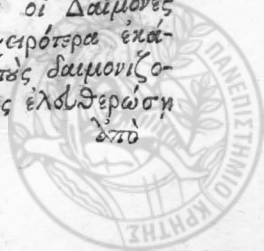 οἱ Δαίμονες
χειρότερα ἐκά-
τοὺς δαιμονιζο-
ς ἐλευθερώσῃ
ἀπὸ
ΠΑΝΕΠΙΣΤΗΜΙΟ ΚΡΗΤΗΣ